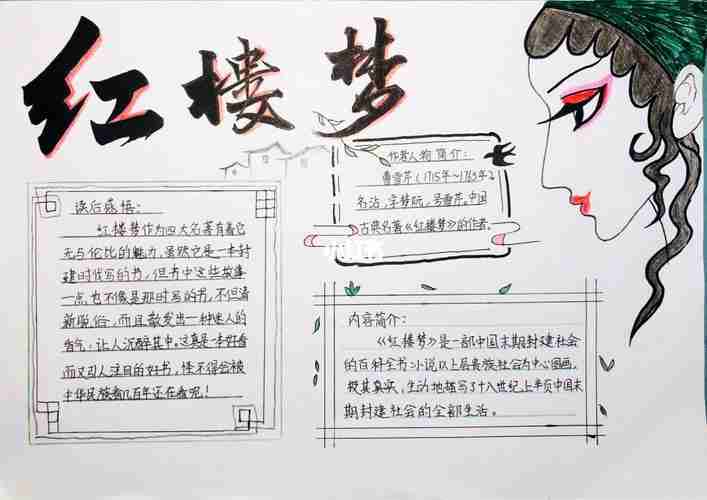 红楼梦
读后感悟：
红楼梦作为四大名著有着它
无与伦比的魅力，虽然它是一本封
建时代写的书，但书中这些故事
一点也不像是那时写的书，不但清
新脱俗，而且散发出一种迷人的
香气，让人沉醉其中，这真是一本好看
而又引人注目的好书，怪不得会被
中华民族看几百年还在看呢！
作者人物简介：
曹雪芹（1715年～1763年）
名沾，字梦阮，号雪芹，中国
古典名著《红楼梦》的作者。
小红书
内容简介：
《红楼梦》是一部中国末期封建社会
的百科全书：小说以上层贵族社会为中心图画，
极其真实，生动地描写了十八世纪上半页中国末
期封建社会的全部生活。